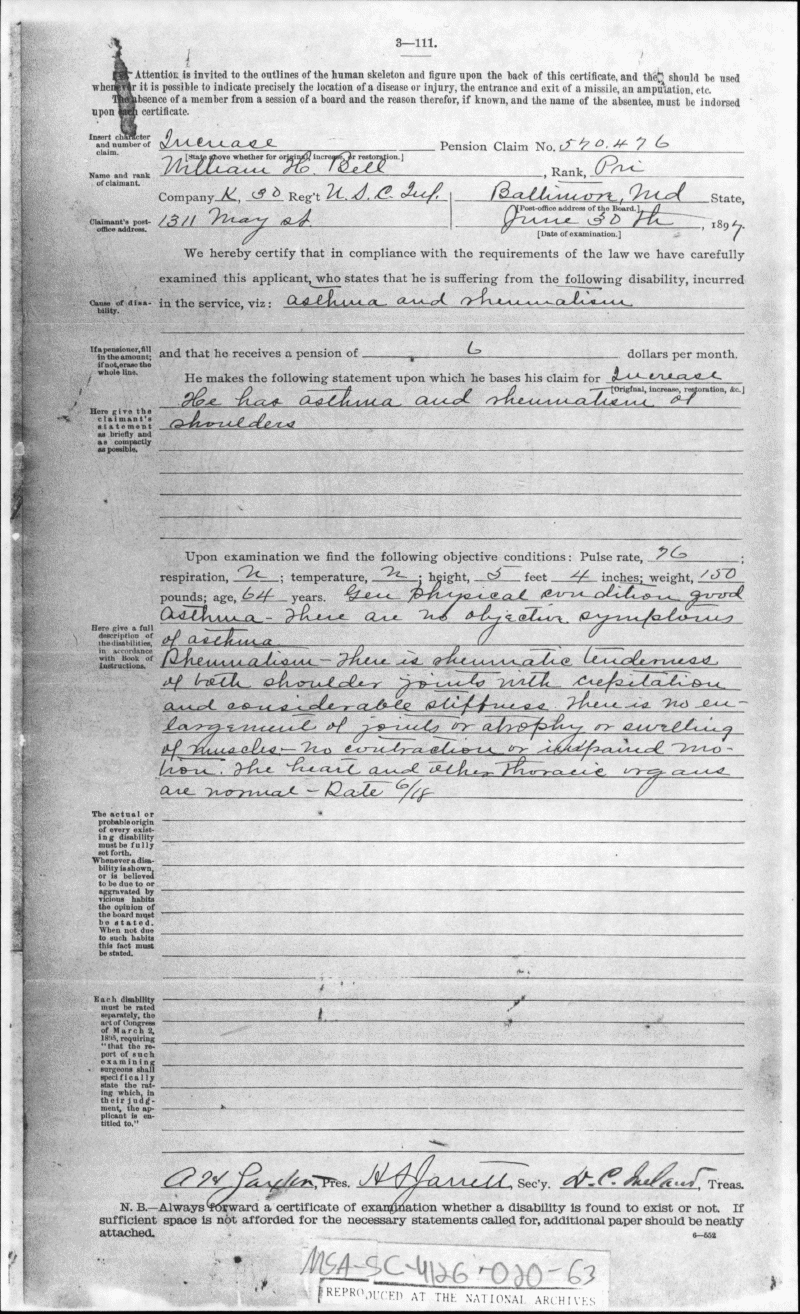 3—111.
Attention is invited to the outlines of the human skeleton and figure upon the back of this certificate, and they should be used
whenever it is possible to indicate precisely the location of a disease or injury, the entrance and exit of a missile, an amputation, etc.
The absence of a member from a session of a board and the reason therefor, if known, and the name of the absentee, must be indorsed
upon each certificate.
Insert character and number of claim.
Increase Pension Claim No. 570.476
[State above whether for original, increase, or restoration.]
Name and rank of claimant.
William H. Bell, Rank, Pri
Company K, 30 Reg't U.S.C. Inf. Baltimore, Md State,
[Post-office address of the Board.]
Claimant's post-office address.
1311 May st. June 30th, 1897.
[Date of examination.]
We hereby certify that in compliance with the requirements of the law we have carefully
examined this applicant, who states that he is suffering from the following disability, incurred
Cause of disability.
in the service, viz: asthma and rheumatism
If a pensioner, fill in the amount; if not, erase the whole line.
and that he receives a pension of 6 dollars per month.
He makes the following statement upon which he bases his claim for Increase
[Original, increase, restoration, &c.]
Here give the claimant's statement as briefly and as compactly as possible.
He has asthma and rheumatism of
shoulders
Upon examination we find the following objective conditions: Pulse rate, 76;
respiration, N; temperature, N; height, 5 feet 4 inches; weight, 150
pounds; age, 64 years. Gen Physical condition good
Here give a full description of the disabilities, in accordance with Book of Instructions.
Asthma - There are no objective symptoms
of asthma
Rheumatism - There is rheumatic tenderness
of both shoulder joints with crepitation
and considerable stiffness. There is no en-
largement of joints or atrophy or swelling
of muscles - No contraction or impaired mo-
tion. The heart and other thoracic organs
are normal - Rate 6/18
The actual or probable origin of every existing disability must be fully set forth.
Whenever a disability is shown, or is believed to be due to or aggravated by vicious habits the opinion of the board must be stated. When not due to such habits this fact must be stated.
Each disability must be rated separately, the act of Congress of March 2, 1895, requiring "that the report of such examining surgeons shall specifically state the rating which, in their judgment, the applicant is entitled to."
Pres. H S Jarrett, Sec'y. W. C. Ireland, Treas.
N. B.—Always forward a certificate of examination whether a disability is found to exist or not. If
sufficient space is not afforded for the necessary statements called for, additional paper should be neatly
attached.
6—552
MSA-SC-4126-020-63
REPRODUCED AT THE NATIONAL ARCHIVES